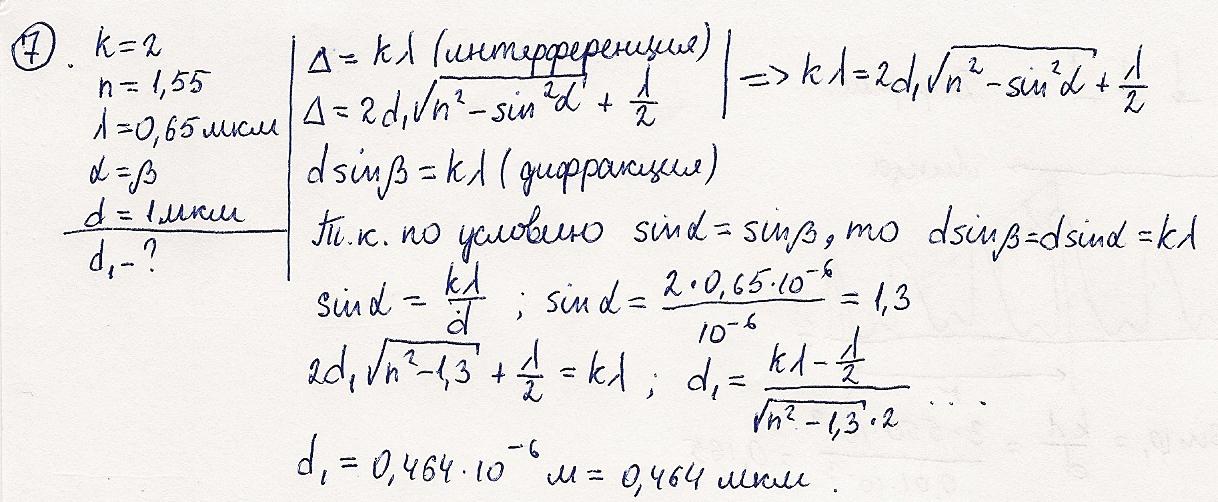 7. k=2
n=1,55
λ=0,65 мкм
α=β
d=1 мкм
d₁-?
Δ=kλ (интерференция)
Δ=2d₁√(n²-sin²α) + λ/2
=> kλ=2d₁√(n²-sin²α) + λ/2
d sinβ=kλ (дифракция)
Т.к. по условию sinα=sinβ, то dsinβ=dsinα=kλ
sinα = kλ/d ; sinα = 2·0,65·10⁻⁶/10⁻⁶ = 1,3
2d₁√(n²-1,3) + λ/2 = kλ ; d₁ = (kλ - λ/2)/(√(n²-1,3)·2) ...
d₁ = 0,464·10⁻⁶ м = 0,464 мкм.